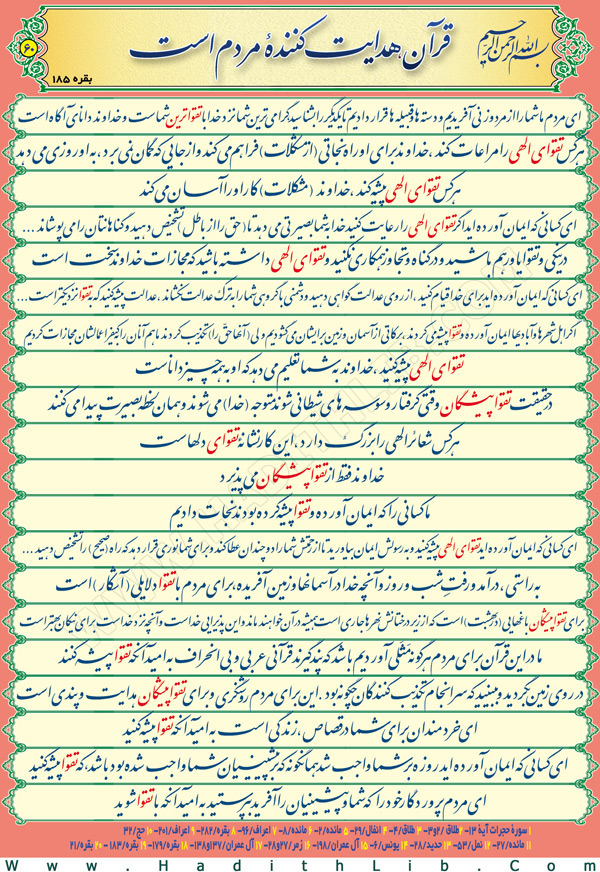 بسم الله الرحمن الرحیم
قرآن هدایت کنندهٔ مردم است
۶۰
بقره ۱۸۵
ای مردم ما شما را از مرد و زنی آفریدیم و دسته ها و قبیله ها قرار دادیم تا یکدیگر را بشناسید گرامی ترین شما نزد خدا با تقواترین شماست و خداوند دانای آگاه است
هرکس تقوای الهی را مراعات کند ، خداوند برای او راه نجاتی (از مشکلات) فراهم می کند و از جایی که گمان نمی برد ، به او روزی می دهد
هرکس تقوای الهی پیشه کند ، خداوند (مشکلات) کار او را آسان می کند
ای کسانی که ایمان آورده اید اگر تقوای الهی را رعایت کنید خدا به شما بصیرتی می دهد تا (حق را از باطل) تشخیص دهید و گناهانتان را می پوشاند ...
در نیکی و تقوا یاور هم باشید و در گناه و تجاوز همکاری نکنید و تقوای الهی داشته باشید که مجازات خداوند سخت است
ای کسانی که ایمان آورده اید برای خدا قیام کنید ، از روی عدالت گواهی دهید و دشمنی با گروهی شما را به ترک عدالت نکشاند ، عدالت پیشه کنید که به تقوا نزدیکتر است ...
اگر اهل شهرها و آبادیها ایمان آورده و تقوا پیشه می کردند ، برکاتی از آسمان و زمین بر ایشان می گشودیم ولی (آنها حق را) تکذیب کردند ما هم آنان را به کیفر اعمالشان مجازات کردیم
تقوای الهی پیشه کنید ، خداوند به شما تعلیم می دهد که او به همه چیز داناست
در حقیقت تقوا پیشگان وقتی گرفتار وسوسه های شیطانی شوند متوجه (خدا) می شوند و همان لحظه بصیرت پیدا می کنند
هرکس شعائر الهی را بزرگ دارد ، این کار نشانهٔ تقوای دلهاست
خداوند فقط از تقوا پیشگان می پذیرد
ما کسانی را که ایمان آورده و تقوا پیشه کرده بودند نجات دادیم
ای کسانی که ایمان آورده اید تقوای الهی پیشه کنید و به رسولش ایمان بیاورید تا از رحمتش شما را دو چندان عطا کند و برای شما نوری قرار دهد که راه (صحیح) را تشخیص دهید ...
به راستی ، در آمد و رفت شب و روز و آنچه خدا در آسمانها و زمین آفریده ، برای مردم با تقوا دلایلی (آشکار) است
برای تقوا پیشگان باغهایی (در بهشت) است که از زیر درختانش نهرها جاری است همیشه در آن خواهند ماند و این پذیرایی خداست و آنچه نزد خداست برای نیکان بهتر است
ما در این قرآن برای مردم هرگونه مثلی آوردیم باشد که پند گیرند قرآنی عربی و بی انحراف به امید آنکه تقوا پیشه کنند
در روی زمین بگردید و ببینید که سرانجام تکذیب کنندگان چگونه بود . این برای مردم روشنگری و برای تقوا پیشگان هدایت و پندی است
ای خردمندان برای شما در قصاص ، زندگی است به امید آنکه تقوا پیشه کنید
ای کسانی که ایمان آورده اید روزه بر شما واجب شد همانگونه که بر پیشینیان شما واجب شده بود باشد ، که تقوا پیشه کنید
ای مردم پروردگار خود را که شما و پیشینیان را آفرید بپرستید به امید آنکه با تقوا شوید
۱ سورهٔ حجرات آیهٔ ۱۳- ۲ طلاق /۲و۳- ۳ طلاق/۴- ۴ انفال/۲۹- ۵ مائده/۲- ۶ مائده/۸- ۷ اعراف/۹۶- ۸ بقره/۲۸۲- ۹ اعراف/۲۰۱- ۱۰ حج/۳۲
۱۱ مائده/۲۷- ۱۲ نمل/۵۳- ۱۳ حدید/۲۸- ۱۴ یونس/۶- ۱۵ آل عمران/۱۹۸- ۱۶ زمر/۲۷و۲۸- ۱۷ آل عمران/۱۳۷و۱۳۸- ۱۸ بقره/۱۷۹- ۱۹ بقره/۱۸۳- ۲۰ بقره/۲۱
www.HadithLib.Com